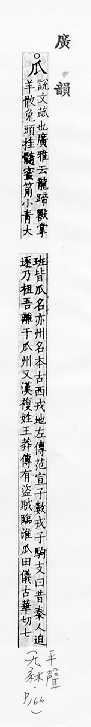 廣韻
○瓜
說文蓏也廣雅云龍蹄獸掌
羊骹兔頭桂髓蜜筩小青大
班皆瓜名亦州名本古西戎地左傳范宣子數戎子駒支曰昔秦人迫
逐乃祖吾離于瓜州又漢複姓王莽傳有盜賊臨淮瓜田儀古華切七
平聲
(九麻·P166)